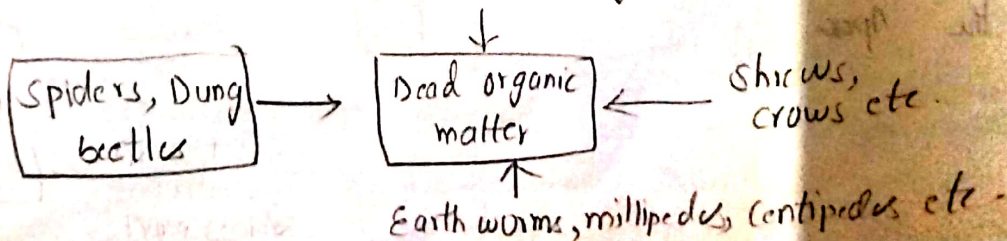 Spiders, Dung
beetles
Dead organic
matter
Shrews,
crows etc.
Earth worms, millipedes, Centipedes etc.